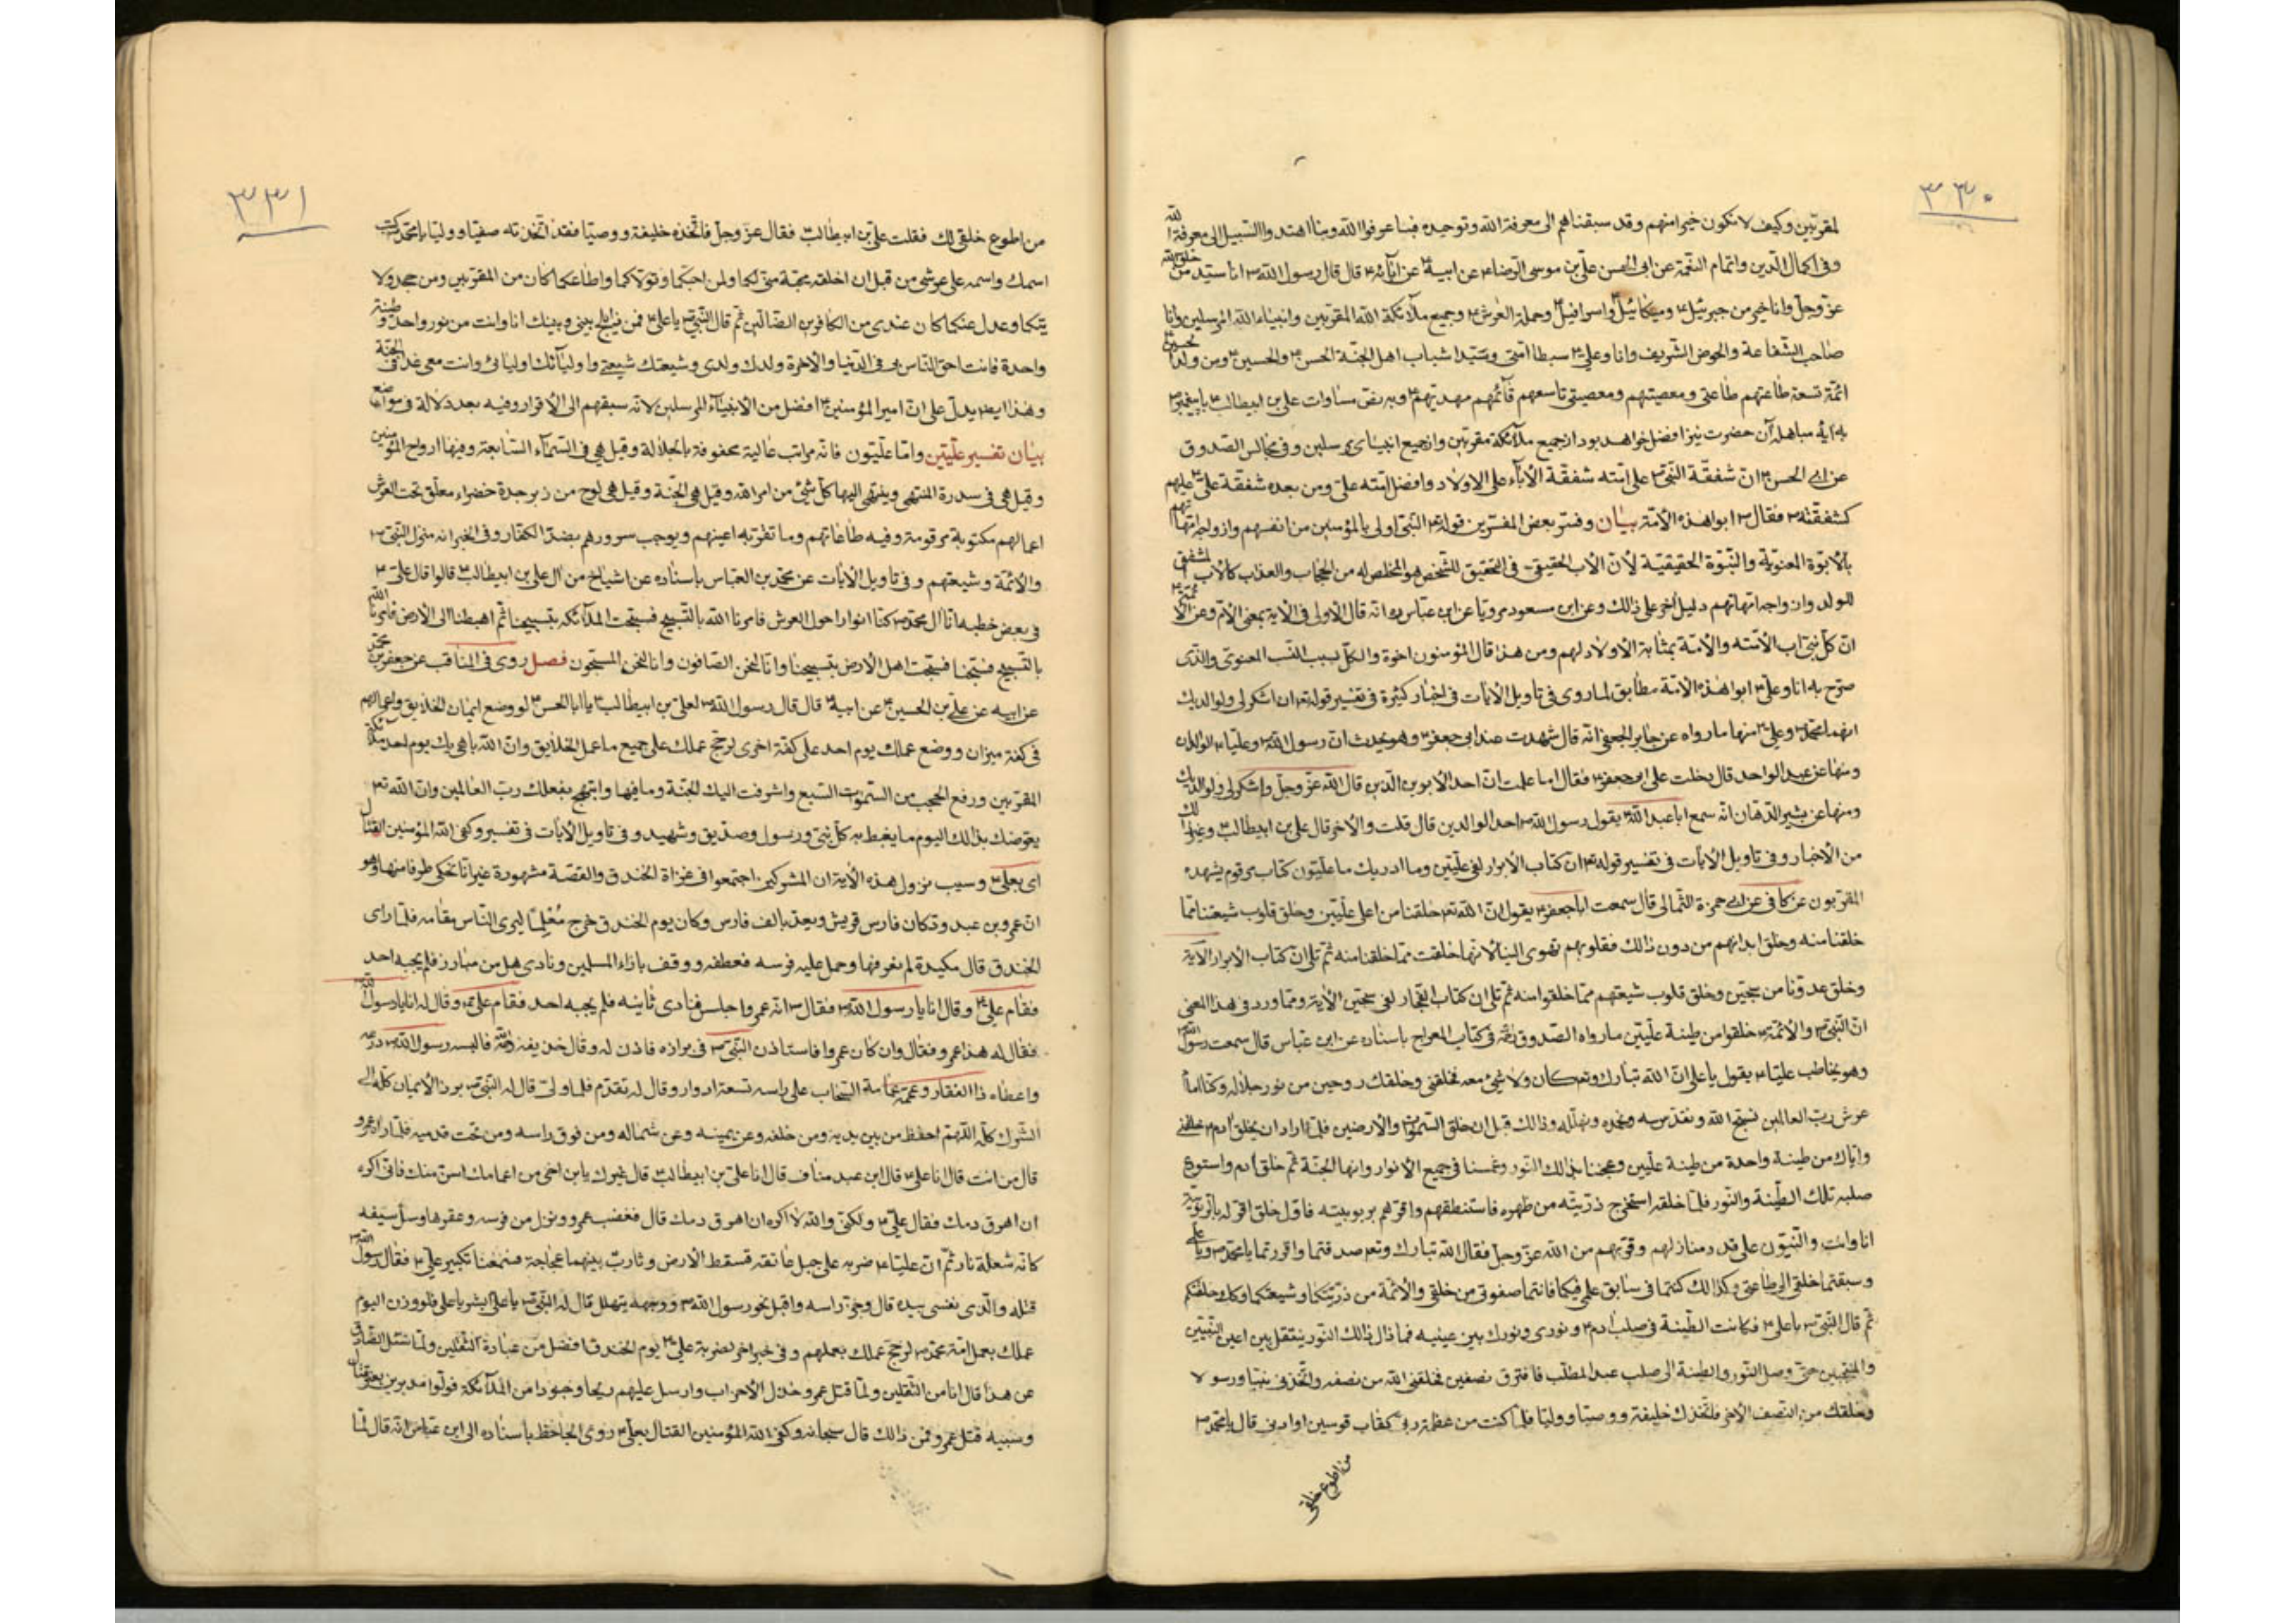 ٣٣٠
لمقربين وكيف لا نكون خيرا منهم وقد سبقناهم الى معرفة الله وتوحيده فبنا عرفوا الله وبنا اهتدوا السبيل الى معرفة الله
وفى اكمال الدين واتمام النعمة عن ابى الحسن على بن موسى الرضا ع عن ابيه ع عن ابائه ع قال قال رسول الله ص انا سيد من خلق الله
عز وجل وانا خير من جبرئيل ع وميكائيل واسرافيل وحملة العرش ع وجميع ملائكة الله المقربين وانبياء الله المرسلين وانا
صاحب الشفاعة والحوض الشريف وانا وعلى ع سبطا امتى وسيدا شباب اهل الجنة الحسن ع والحسين ع ومن ولد الحسين ع
ائمة تسعة طاعتهم طاعتى ومعصيتهم ومعصيتى تاسعهم قائمهم مهديهم ع وبر نص مساوات على بن ابيطالب ع با پيغمبر ص
به ايه مباهله آن حضرت نيز افضل خواهد بود از جميع ملائكة مقربين واز جميع انبياى مرسلين وفى مجالس الصدوق
عن ابى الحسن ع ان شفقة النبى ص على امته شفقة الاباء على الاولاد وافضل امته على ومن بعده شفقة على ع عليهم
كشفقته ع فقال ص ابوا هذه الامة بيان وفسر بعض المفسرين قوله تع النبى اولى بالمؤمنين من انفسهم وازواجه امهاتهم
بالابوة المعنوية والنبوة الحقيقية لان الاب الحقيقى فى التحقيق للشخص هو المخلص له من الحجاب والعذاب كالاب المشفق
للولد وازواجه امهاتهم دليل اخر على ذلك وعن ابن مسعود مرويا عن ابن عباس ره انه قال الاولى فى الاية بمعنى الام وعن
ان كل نبى اب الامته والامة بمثابة الاولاد لهم ومن هذا قال المؤمنون اخوة والكل بسبب النسب المعنوى والذى
صرح به انا وعلى ع ابوا هذه الامة مطابق لما روى فى تاويل الايات فى اخبار كثيرة فى تفسير قوله تع ان اشكر لى ولوالديك
انهما محمد ص وعلى ع منها ما رواه عن جابر الجعفى انه قال شهدت عند ابى جعفر ع وهو يحدث ان رسول الله ص وعليا ع الوالدان
ومنها عن عبد الواحد قال دخلت على ابى جعفر ع فقال اما علمت ان احد الابوين الذين قال الله عز وجل واشكر لى ولوالديك
ومنها عن بشير الدهان انه سمع ابا عبد الله ع يقول رسول الله ص احد الوالدين قال قلت والاخر قال على بن ابيطالب ع وغير ذلك
من الاخبار وفى تاويل الايات فى تفسير قوله تع ان كتاب الابرار لفى عليين وما ادريك ما عليون كتاب مرقوم يشهده
المقربون عن كافى عن ابى حمزة الثمالى قال سمعت ابا جعفر ع يقول ان الله تع خلقنا من اعلى عليين وخلق قلوب شيعتنا مما
خلقنا منه وخلق ابدانهم من دون ذالك فقلوبهم تهوى الينا لانها خلقت مما خلقنا منه ثم تلى ان كتاب الابرار الآية
وخلق عدونا من سجين وخلق قلوب شيعتهم مما خلقوا منه ثم تلى ان كتاب الفجار لفى سجين الاية ومما ورد فى هذا المعنى
ان النبى ص والائمة ع خلقوا من طينة عليين ما رواه الصدوق ره فى كتاب المعراج باسناده عن ابن عباس قال سمعت رسول الله ص
وهو يخاطب عليا ع يقول يا على ان الله تبارك وتع كان ولا شئ معه فخلقنى وخلقك روحين من نور جلاله وكنا امام
عرش رب العالمين نسبح الله ونقدسه ونحمده ونهلله وذالك قبل ان خلق السموات والارضين فلما اراد ان يخلق ادم ع خلقنى
واياك من طينة واحدة من طينة عليين وعجننا بذالك النور وغمسنا فى جميع الانوار وانهار الجنة ثم خلق ادم واستودع
صلبه تلك الطينة والنور فلما خلقه استخرج ذريته من ظهره فاستنطقهم واقرهم بربوبيته فاول خلق اقر له بالربوبية
انا وانت والنبيون على قدر منازلهم وقربهم من الله عز وجل فقال الله تبارك وتع صدقتما واقررتما يا محمد ص ويا على
وسبقتما خلقى الى طاعتى وكذالك كنتما فى سابق علمى فيكما فانتما صفوتى من خلقى والائمة من ذريتكما وشيعتكما وكذا خلقتكم
ثم قال النبى ص يا على ع فكانت الطينة فى صلب ادم ع ونورى ونورك بين عينيه فما زال ذالك النور ينتقل بين اعين النبيين
والمنتجبين حتى وصل النور والطينة الى صلب عبد المطلب فافترق نصفين فخلقنى الله من نصفه واتخذنى نبيا ورسولا
وخلقك من النصف الاخر فاتخذك خليفة ووصيا ووليا فلما كنت من عظمة ربى كقاب قوسين او ادنى قال يا محمد ص
من اطوع خلقى
٣٣١
من اطوع خلقى لك فقلت على بن ابيطالب ع فقال عز وجل فاتخذه خليفة ووصيا فقد اتخذته صفيا ووليا يا محمد كتبت
اسمك واسمه على عرشى من قبل ان اخلقه محبة منى لكما ولمن احبكما وتولاكما واطاعكما كان من المقربين ومن جحد ولا
يتكما وعدل عنكما كان عندى من الكافرين الضالين ثم قال النبى ص يا على ع فمن ذا يلج بينى وبينك انا وانت من نور واحد وطينة
واحدة فانت احق الناس بى فى الدنيا والاخرة ولدك ولدى وشيعتك شيعتى واوليائك اوليائى وانت معى غدا فى الجنة
وهذا ايض يدل على ان امير المؤمنين ع افضل من الانبياء المرسلين لانه سبقهم الى الاقرار وفيه بعد دلالة فى مواضع
بيان تفسير عليين واما عليون فانه مراتب عالية محفوفة بالجلالة وقيل هى فى السماء السابعة وفيها ارواح المؤمنين
وقيل هى فى سدرة المنتهى وينتهى اليها كل شئ من امر الله وقيل هى الجنة وقيل هى لوح من زبرجدة خضراء معلق تحت العرش
اعمالهم مكتوبة مرقومة وفيه طاعاتهم وما تقر به اعينهم ويوجب سرورهم بضد الكفار وفى الخبر انه منزل النبى ص
والائمة وشيعتهم وفى تاويل الايات عن محمد بن العباس باسناده عن اشياخ من ال على بن ابيطالب ع قالوا قال على ع
فى بعض خطبه انا ال محمد ص كنا انوارا حول العرش فامرنا الله بالتسبيح فسبحت الملائكه بتسبيحنا ثم اهبطنا الى الارض فامرنا الله
بالتسبيح فسبحنا فسبحت اهل الارض بتسبيحنا وانا لنحن الصافون وانا لنحن المسبحون فصل روى فى المناقب عن جعفر بن محمد
عن ابيه عن على بن الحسين ع عن ابيه ع قال قال رسول الله ص لعلى بن ابيطالب ع يا ابا الحسن ع لو وضع ايمان الخلايق واعمالهم
فى كفة ميزان ووضع عملك يوم احد على كفة اخرى لرجح عملك على جميع ما عمل الخلايق وان الله باهى بك يوم احد ملائكته
المقربين ورفع الحجب من السموات السبع واشرفت اليك الجنة وما فيها وابتهج بفعلك رب العالمين وان الله تع
يعوضك بذالك اليوم ما يغبط به كل نبى ورسول وصديق وشهيد وفى تاويل الايات فى تفسير وكفى الله المؤمنين القتال
اى بعلى ع وسبب نزول هذه الاية ان المشركين اجتمعوا فى غزاة الخندق والقصة مشهورة غير انا نحكى طرفا منها وهو
ان عمرو بن عبد ود كان فارس قريش ويعد بالف فارس وكان يوم الخندق خرج معلما ليرى الناس مقامه فلما راى
الخندق قال مكيدة لم نعرفها وحمل عليه فرسه فعطفه ووقف بازاء المسلمين ونادى هل من مبارز فلم يجبه احد
فقام على ع وقال انا يا رسول الله ص فقال ص انه عمرو اجلس فنادى ثانيه فلم يجبه احد فقام على ع وقال له انا يا رسول الله
فقال له هذا عمرو فقال وان كان عمروا فاستاذن النبى ص فى برازه فاذن له وقال حذيفه رضى الله فالبسه رسول الله ص درعه
واعطاه ذا الفقار وعممه عمامة السحاب على راسه تسعة ادوار وقال له تقدم فلما ولى قال له النبى ص برز الايمان كله الى
الشرك كله اللهم احفظ من بين يديه ومن خلفه وعن يمينه وعن شماله ومن فوق راسه ومن تحت قدميه فلما راه عمرو
قال من انت قال انا على ع قال ابن عبد مناف قال انا على بن ابيطالب ع قال غيرك يا بن اخى من اعمامك اسن منك فانى اكره
ان اهرق دمك فقال على ع ولكنى والله لا اكره ان اهرق دمك قال فغضب عمرو ونزل من فرسه وعقرها وسل سيفه
كانه شعلة نار ثم ان عليا ع ضربه على حبل عاتقه فسقط الارض وثارت بينهما عجاجة فسمعنا تكبير على ع فقال رسول الله ص
قتله والذى نفسى بيده قال وجز راسه واقبل نحو رسول الله ص ووجهه يتهلل قال له النبى ص يا على ابشر يا على فلو وزن اليوم
عملك بعمل امة محمد ص لرجح عملك بعملهم وفى خبر اخر لضربة على ع يوم الخندق افضل من عبادة الثقلين ولما سئل الصادق
عن هذا قال انا من الثقلين ولما قتل عمرو وخذل الاحزاب وارسل عليهم ريحا وجنودا من الملائكة فولوا مدبرين بغير قتال
وسببه قتل عمرو فمن ذالك قال سبحانه وكفى الله المؤمنين القتال بعلى ع روى الحافظ باسناده الى ابن عباس انه قال لما